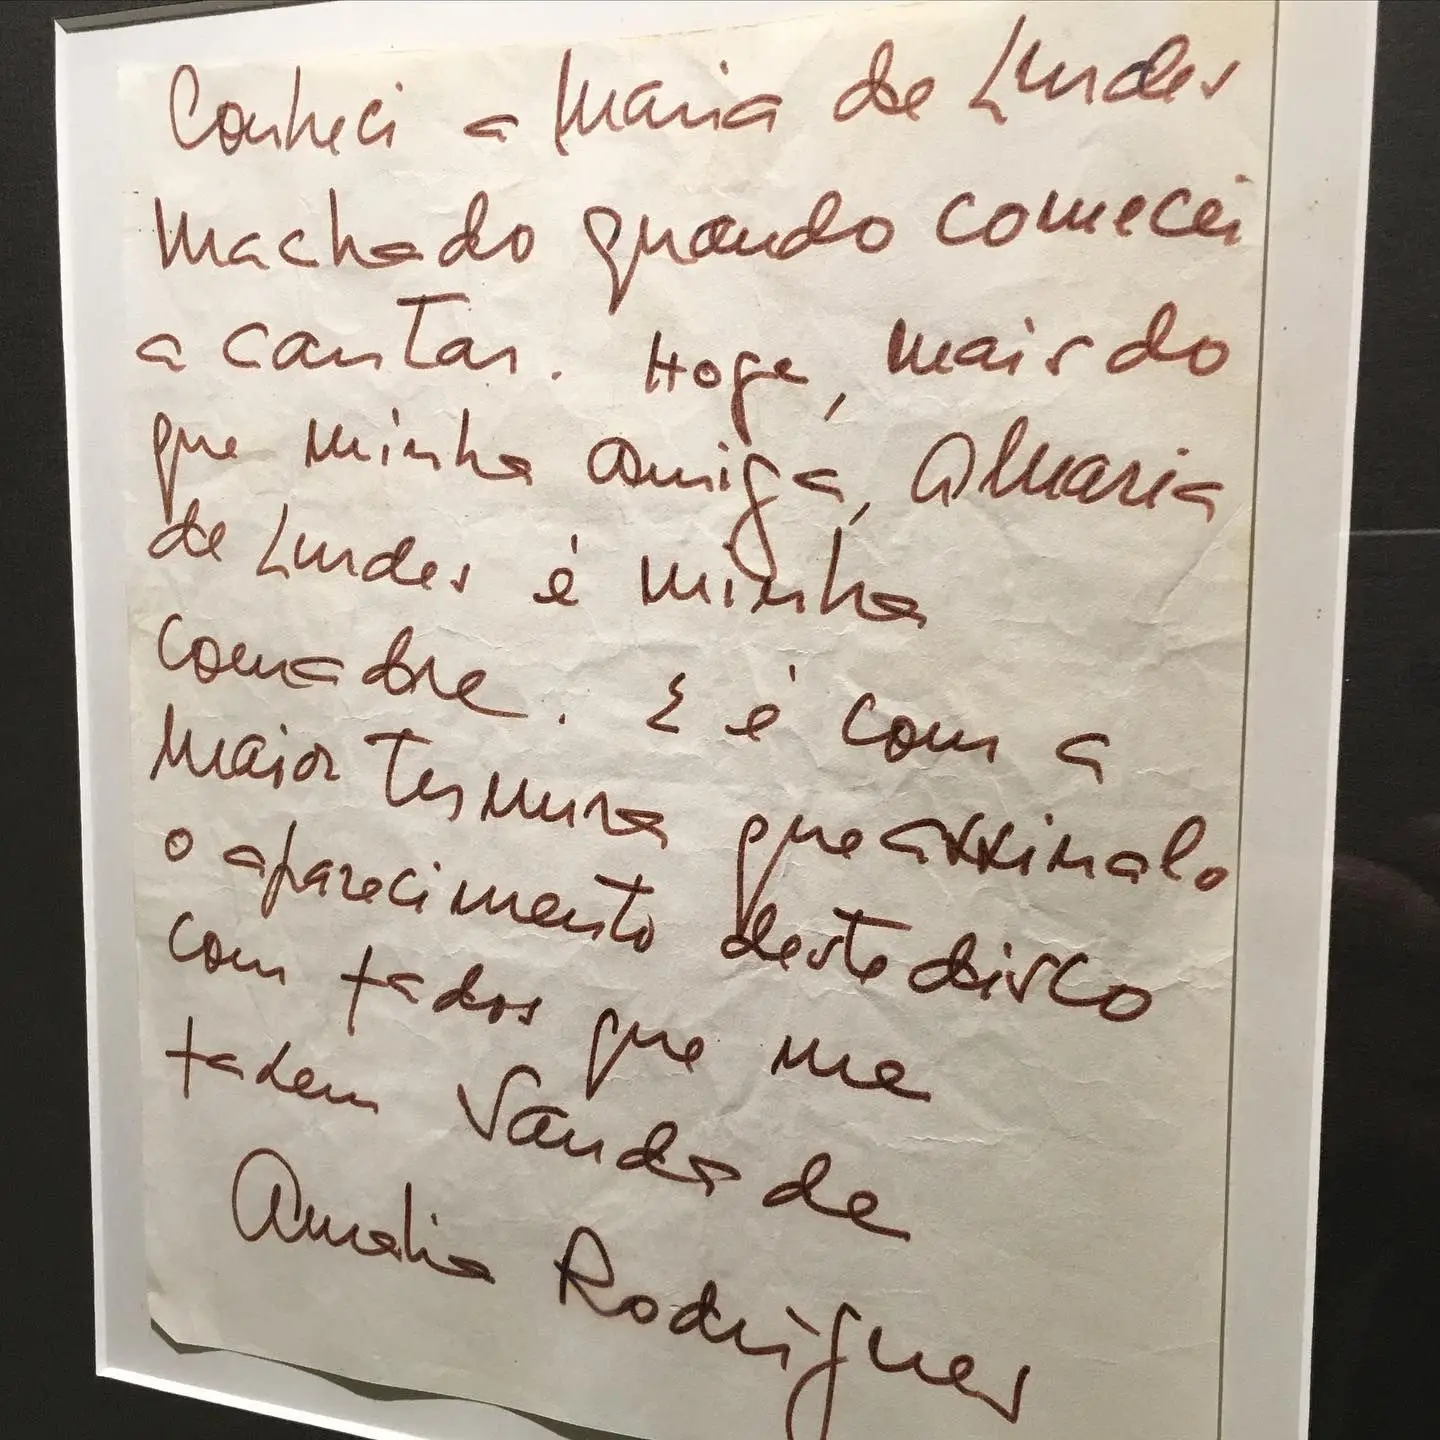 Conheci a Maria de Lurdes
Machado quando comecei
a cantar. Hoge, mais do
que minha amiga, a Maria
de Lurdes é minha
comadre. E é com a
maior ternura que assinalo
o aparecimento deste disco
com fados que me
fadem saudade
Amalia Rodrigues